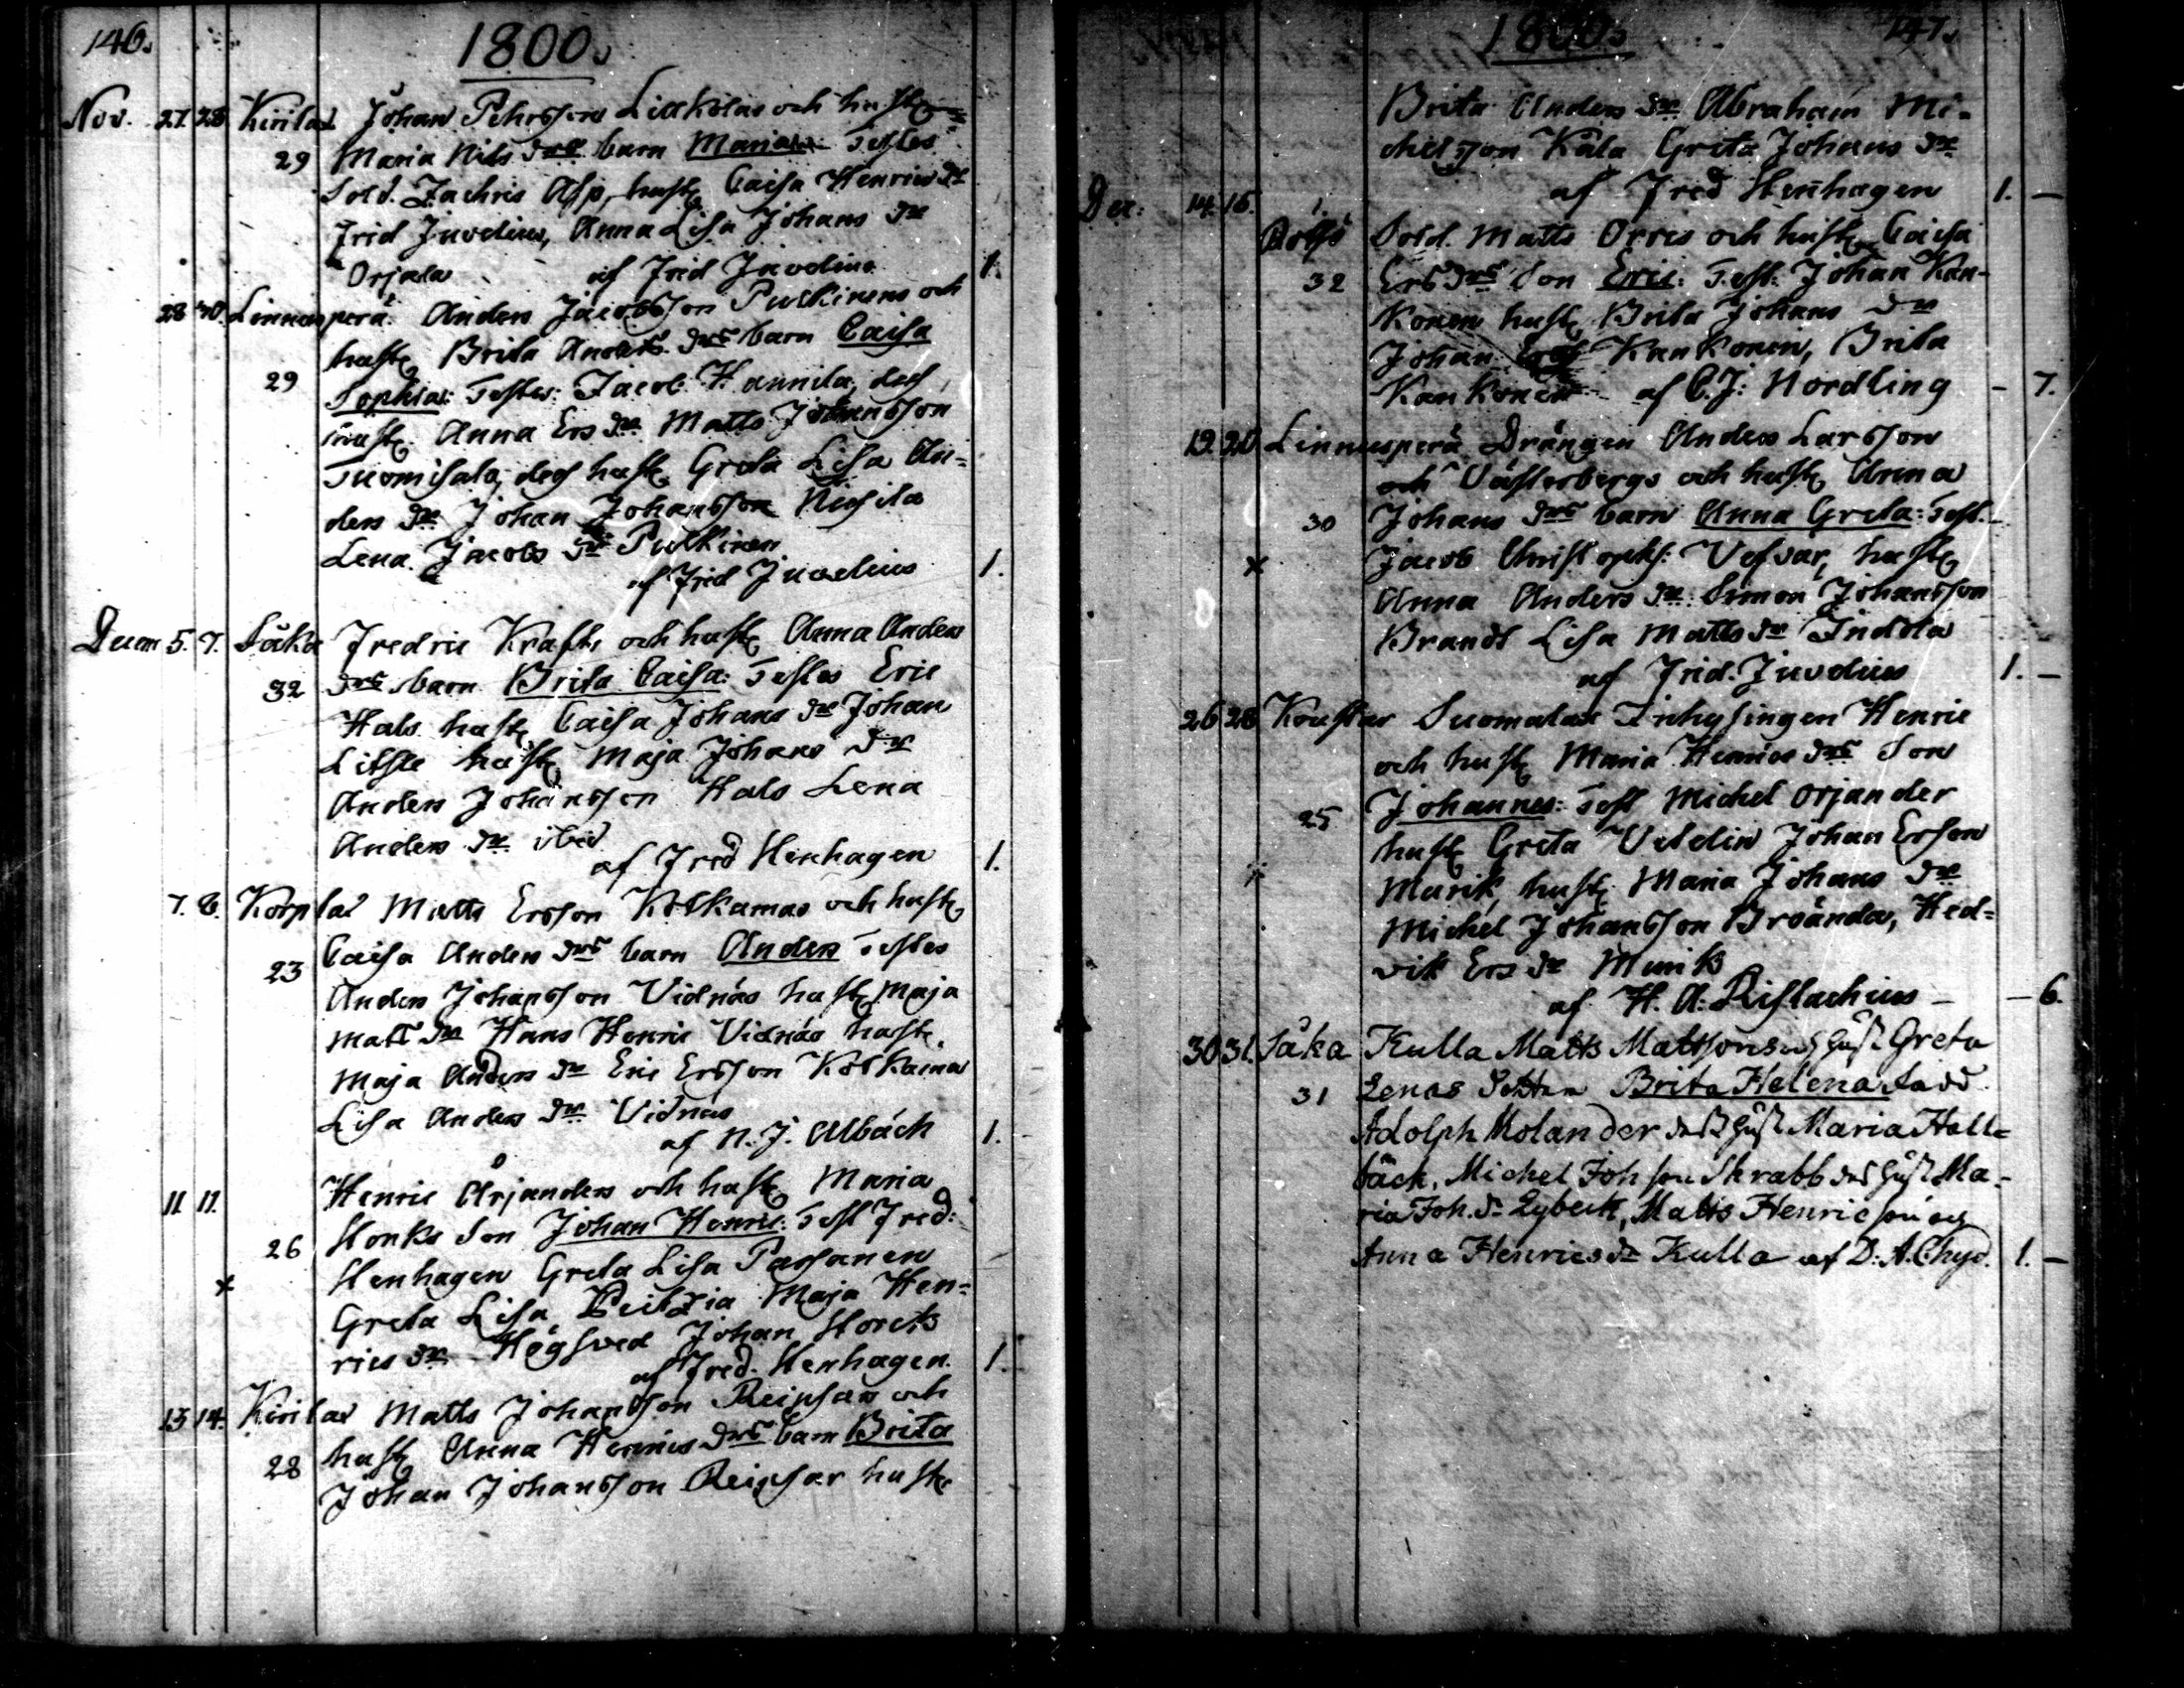 146.
1800.
Nov. 27. 28 Kirilax Johan Pehrssons Lillkålas och hust.
29 Maria Nils Drs barn Maria: Testes
Sold. Zachris Asp, hust. Caisa Henrics Dr
Frid Juvelius, Anna Lisa Johans Dr
Orjala af Frid Juvelius 1.
28 30. Linnusperä. Anders Jacobsson Pulkinens och
hust. Brita Anders Drs barn Caisa
29 Sophia: Testes: Jacob Hannila, dess
hust. Anna Ers Dr Matts Johansson
Tuomisala, dess hust. Greta Lisa An-
ders Dr Johan Johansson
Lena Jacobs Dr Pulkinen
af Frid Juvelius 1.
Decem 5. 7. Såka Fredric Krafts och hust. Anna Anders
32 Drs barn Brita Caisa: Testes Eric
Hals hust. Caisa Johans Dr Johan
Lithle hust. Maja Johans Dr
Anders Johansson Hals Lena
Anders Dr ibid
af Fred Stenhagen 1.
7. 8. Korplax Matts Ersson Kolkamas och hust.
23 Caisa Anders Drs barn Anders Testes
Anders Johansson Vidnäs hust. Maja
Matts Dr Hans Henric Vidnäs hust.
Maja Anders Dr Eric Ersson Kolkama
Lisa Anders Dr Vidnäs
af N. J. Albäck 1.
11 11. Henric Örjanders och hust. Maria
26 Storks Son Johan Henric: Test Fred:
Stenhagen Greta Lisa Passanen
x Greta Lisa Maja Hen-
rics Dr Högsved Johan Storck
af Fred. Stenhagen. 1.
13 14. Kirilax Matts Johansson Reipsars och
28 hust. Anna Henrics Drs barn Brita
Johan Johansson Reipsar hust.
1800. 147.
Brita Anders Dr Abraham Mi-
chelsson Kåla Greta Johans Dr
af Fred Stenhagen 1. —
Dec: 14. 15. Rolfs Sold. Matts Orres och hust. Caisa
32 Ers Drs Son Eric: Test: Johan Kan-
konen hust. Brita Johans Dr
Johan Kankonen, Brita
Kankonen af C. J: Nordling — 7.
19. 20 Linnusperä Drängen Anders Larsson
Västerbergs och hust. Anna
30 Johans Drs barn Anna Greta: Test.
x Jacob Christophs: Vesvar, hust.
Anna Anders Dr: Simon Johansson
Brandt Lisa Matts Dr Indola
af Frid. Juvelius 1. —
26 28 Kouslax Suomalax Inhysingen Henric
och hust. Maria Henrics Drs Son
25 Johannes: Test Michel Orjander
hust. Greta Johan Erson
Murik, hust. Maria Johans Dr
Michel Johansson Broända, Hed-
vik Ers Dr Murik
af H. A: Ristlachius — — 6.
30 31. Såka Kulla Matts Matssons och hust Greta
31 Lenas Dotter Brita Helena fadd.
Adolph Molander dess hust Maria Hall-
bäck, Michel Johson Skrabb des hust Ma-
ria Joh. Dr Lybeck, Matts Henricson och
Anna Henrics Dr Kulla af D: A. Chyd. 1. —